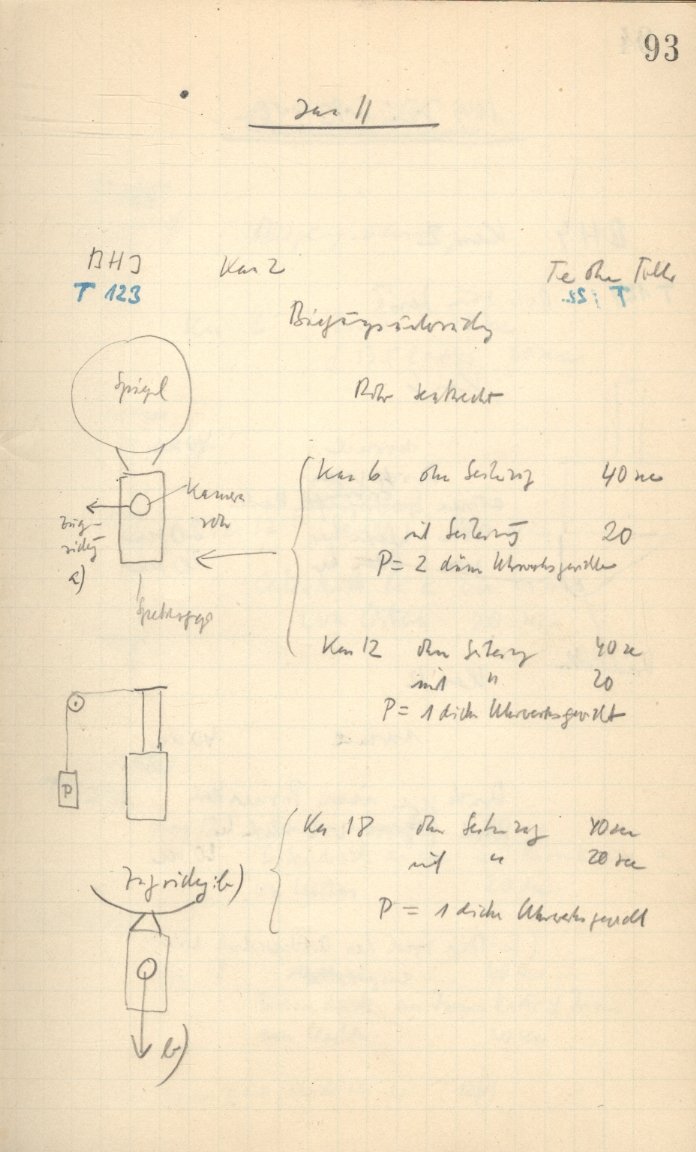 93
Jan 11
BHJ Kas 2 Te ohne Tolle
T 123
Biegungsuntersuchg
Spiegel
Rohr senkrecht
Kas 6 ohne Seilzug 40 sec
Kamera
rohr
Zug-
richtg
a)
mit Seilzug 20
P = 2 dünne Uhrwerksgewichte
Kas 12 ohne Seilzug 40 sec
mit " 20
P = 1 dickes Uhrwerksgewicht
P
Kas 18 ohne Seilzug 40 sec
mit " 20 sec
Zugrichtg: b)
P = 1 dickes Uhrwerksgewicht
b)